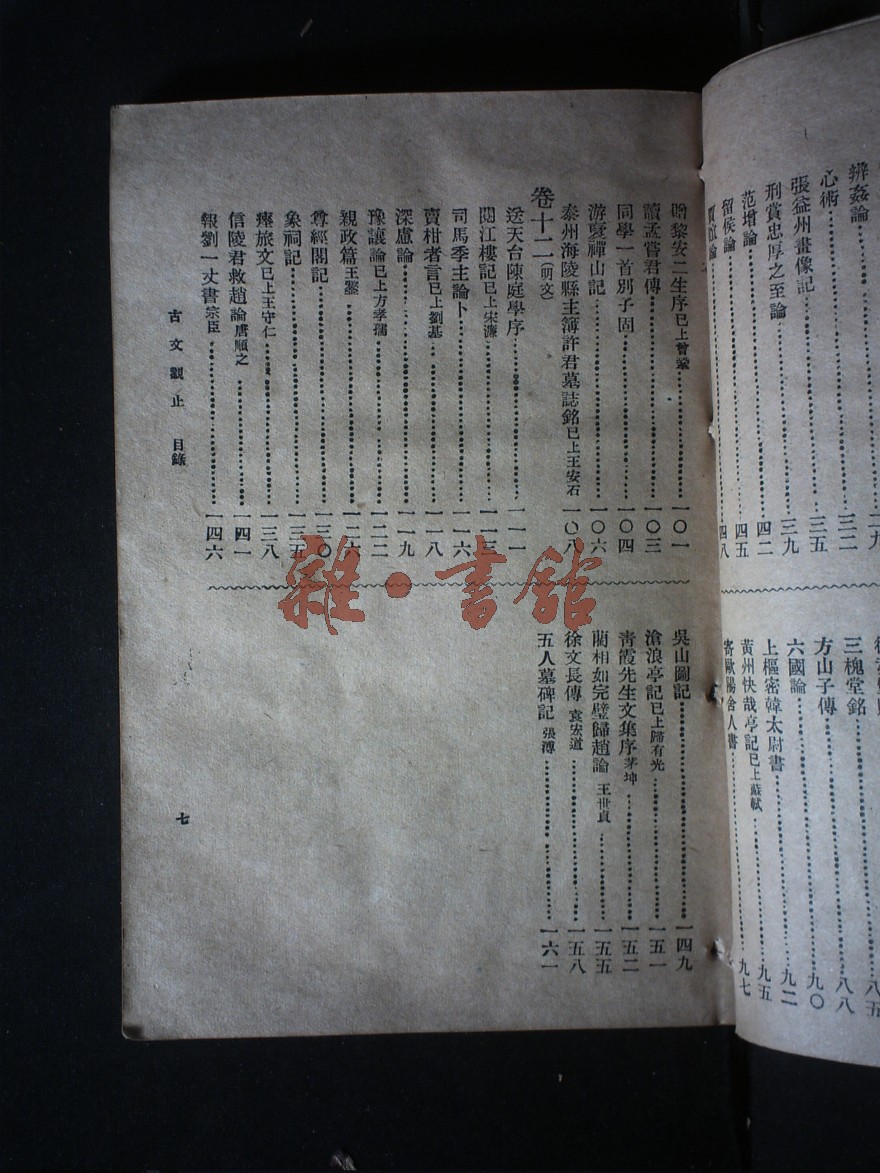 辨姦論
心術……三二
張益州畫像記……三五
刑賞忠厚之至論……三九
范增論……四二
留侯論……四五
賈誼論……四八
三槐堂銘……八八
方山子傳……九〇
六國論……九二
上樞密韓太尉書……九五
黄州快哉亭記已上蘇軾……九七
寄歐陽舍人書
贈黎安二生序已上曾鞏……一〇一
讀孟嘗君傳……一〇三
同學一首別子固……一〇四
游褒禪山記……一〇六
泰州海陵縣主簿許君墓誌銘已上王安石……一〇八
卷十二(明文)
送天台陳庭學序……一一一
閱江樓記已上宋濂……一一三
司馬季主論卜……一一六
賣柑者言已上劉基……一一八
深慮論……一一九
豫讓論已上方孝孺……一二二
親政篇王鏊……一二六
尊經閣記……一三〇
象祠記……一三五
瘞旅文已上王守仁……一三八
信陵君救趙論唐順之……一四一
報劉一丈書宗臣……一四六
吳山圖記……一四九
滄浪亭記已上歸有光……一五一
靑霞先生文集序茅坤……一五二
藺相如完璧歸趙論 王世貞……一五五
徐文長傳 袁宏道……一五八
五人墓碑記 張溥……一六一
古文觀止 目錄
七
雜·書館